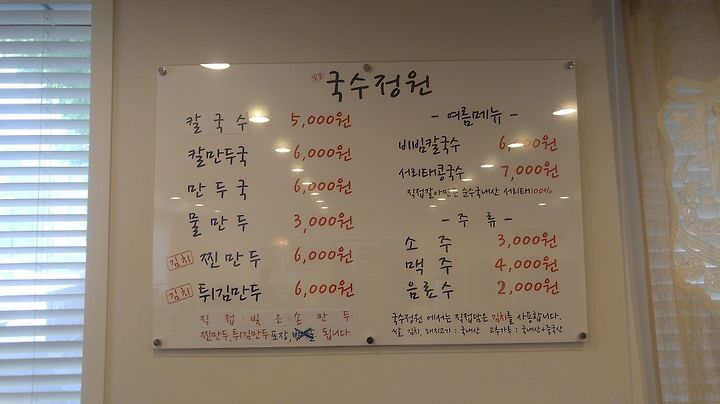 국수정원
칼국수 5,000원
칼만두국 6,000원
만두국 6,000원
물만두 3,000원
김치 찐만두 6,000원
김치 튀김만두 6,000원
직접빚은손만두
찐만두,튀김만두 포장, 됩니다
- 여름메뉴 -
비빔칼국수 6,000원
서리태콩국수 7,000원
직접갈아만든 순수국내산 서리태100%
- 주류 -
소주 3,000원
맥주 4,000원
음료수 2,000원
국수정원 에서는 직접담은 김치를 사용합니다.
쌀, 김치, 돼지고기 : 국내산 고춧가루 : 국내산+중국산